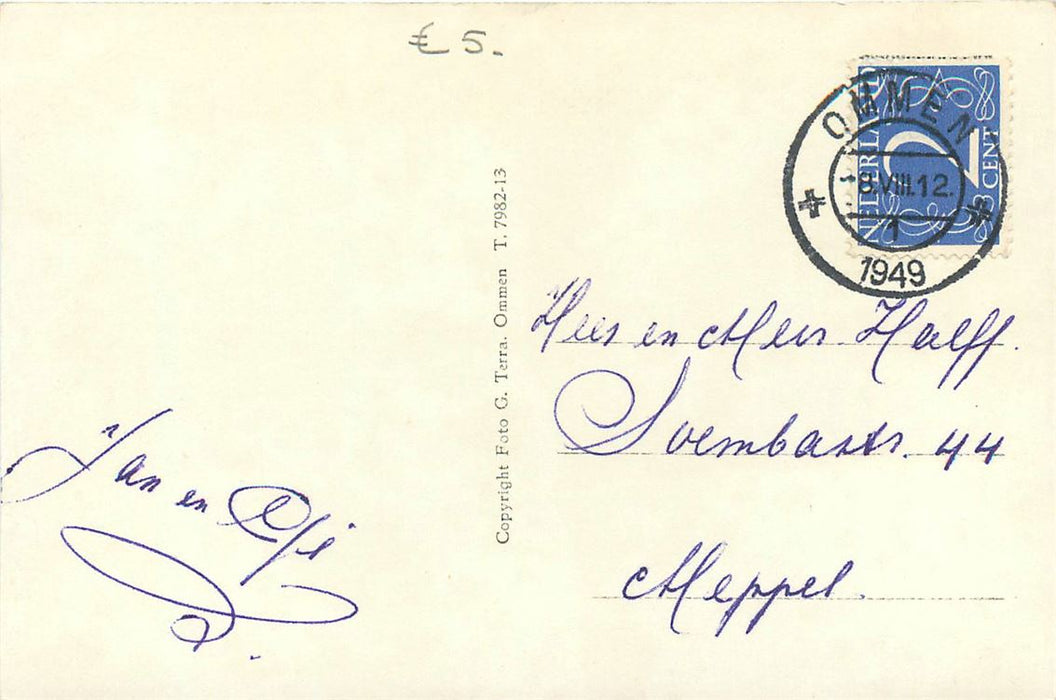 € 5.
NEDERLAND
2
CENT
OMMEN
-8.VIII.12.
1
1949
Copyright Foto G. Terra. Ommen T. 7982-13
Heer en Mevr Halff.
44
Meppel.
Jan en